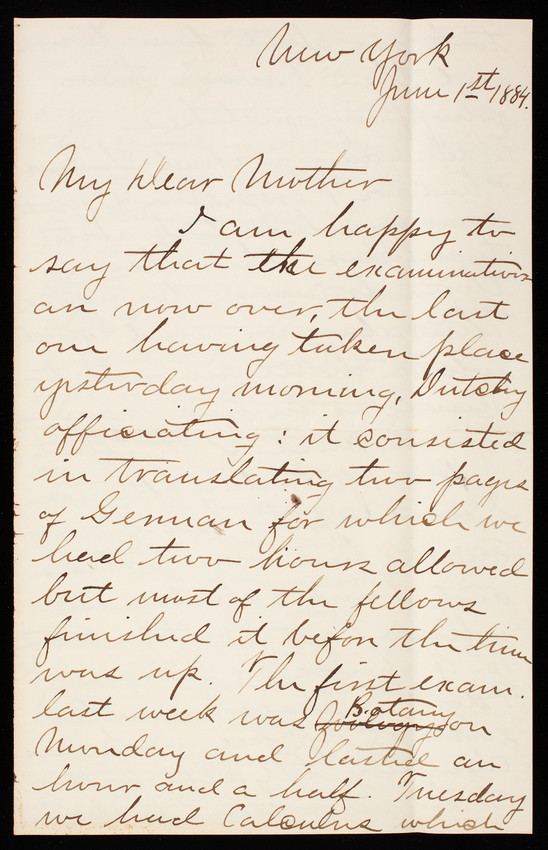 New York
June 1st 1884.
My Dear Mother
I am happy to
say that the examinations
are now over, the last
one having taken place
yesterday morning, Dutchy
officiating: it consisted
in translating two pages
of German for which we
had two hours allowed
but most of the fellows
finished it before the time
was up. The first exam.
last week was Zoology Botany on
Monday and lasted an
hour and a half. Tuesday
we had Calculus which